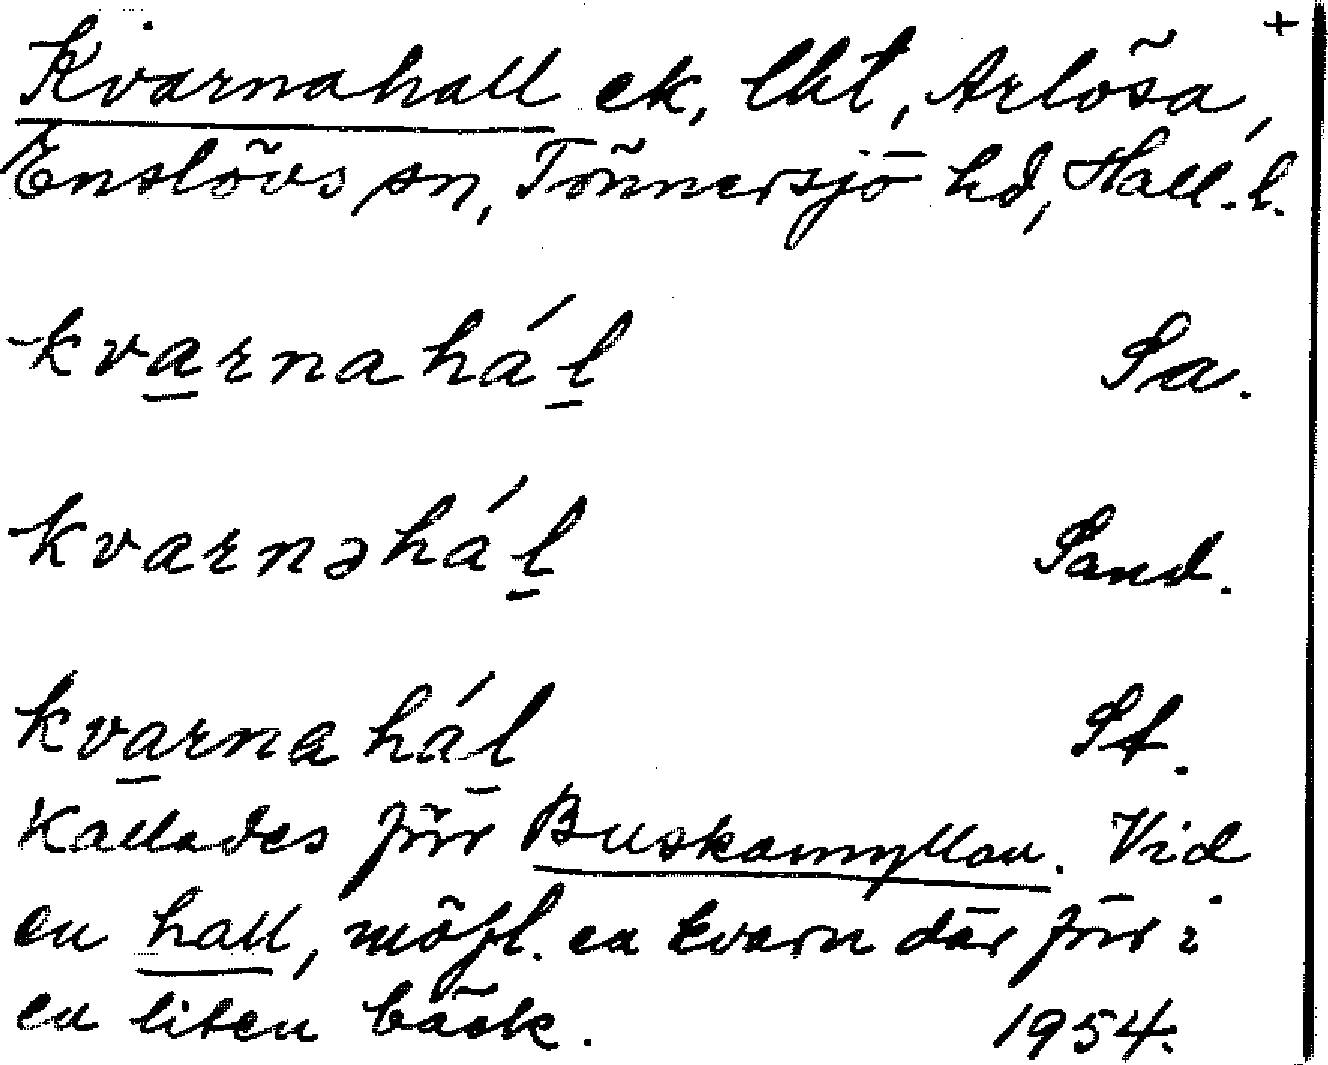 +
Kvarnahall ek, lht, Arlösa,
Enslövs sn, Tönnersjö hd, Hall. l.
kvarnahál Sa.
kvarnəhál Sand.
kvarnahál St.
Kallades förr Buskamyllan. Vid
en hall, möjl. en kvarn där förr i
en liten bäck. 1954.